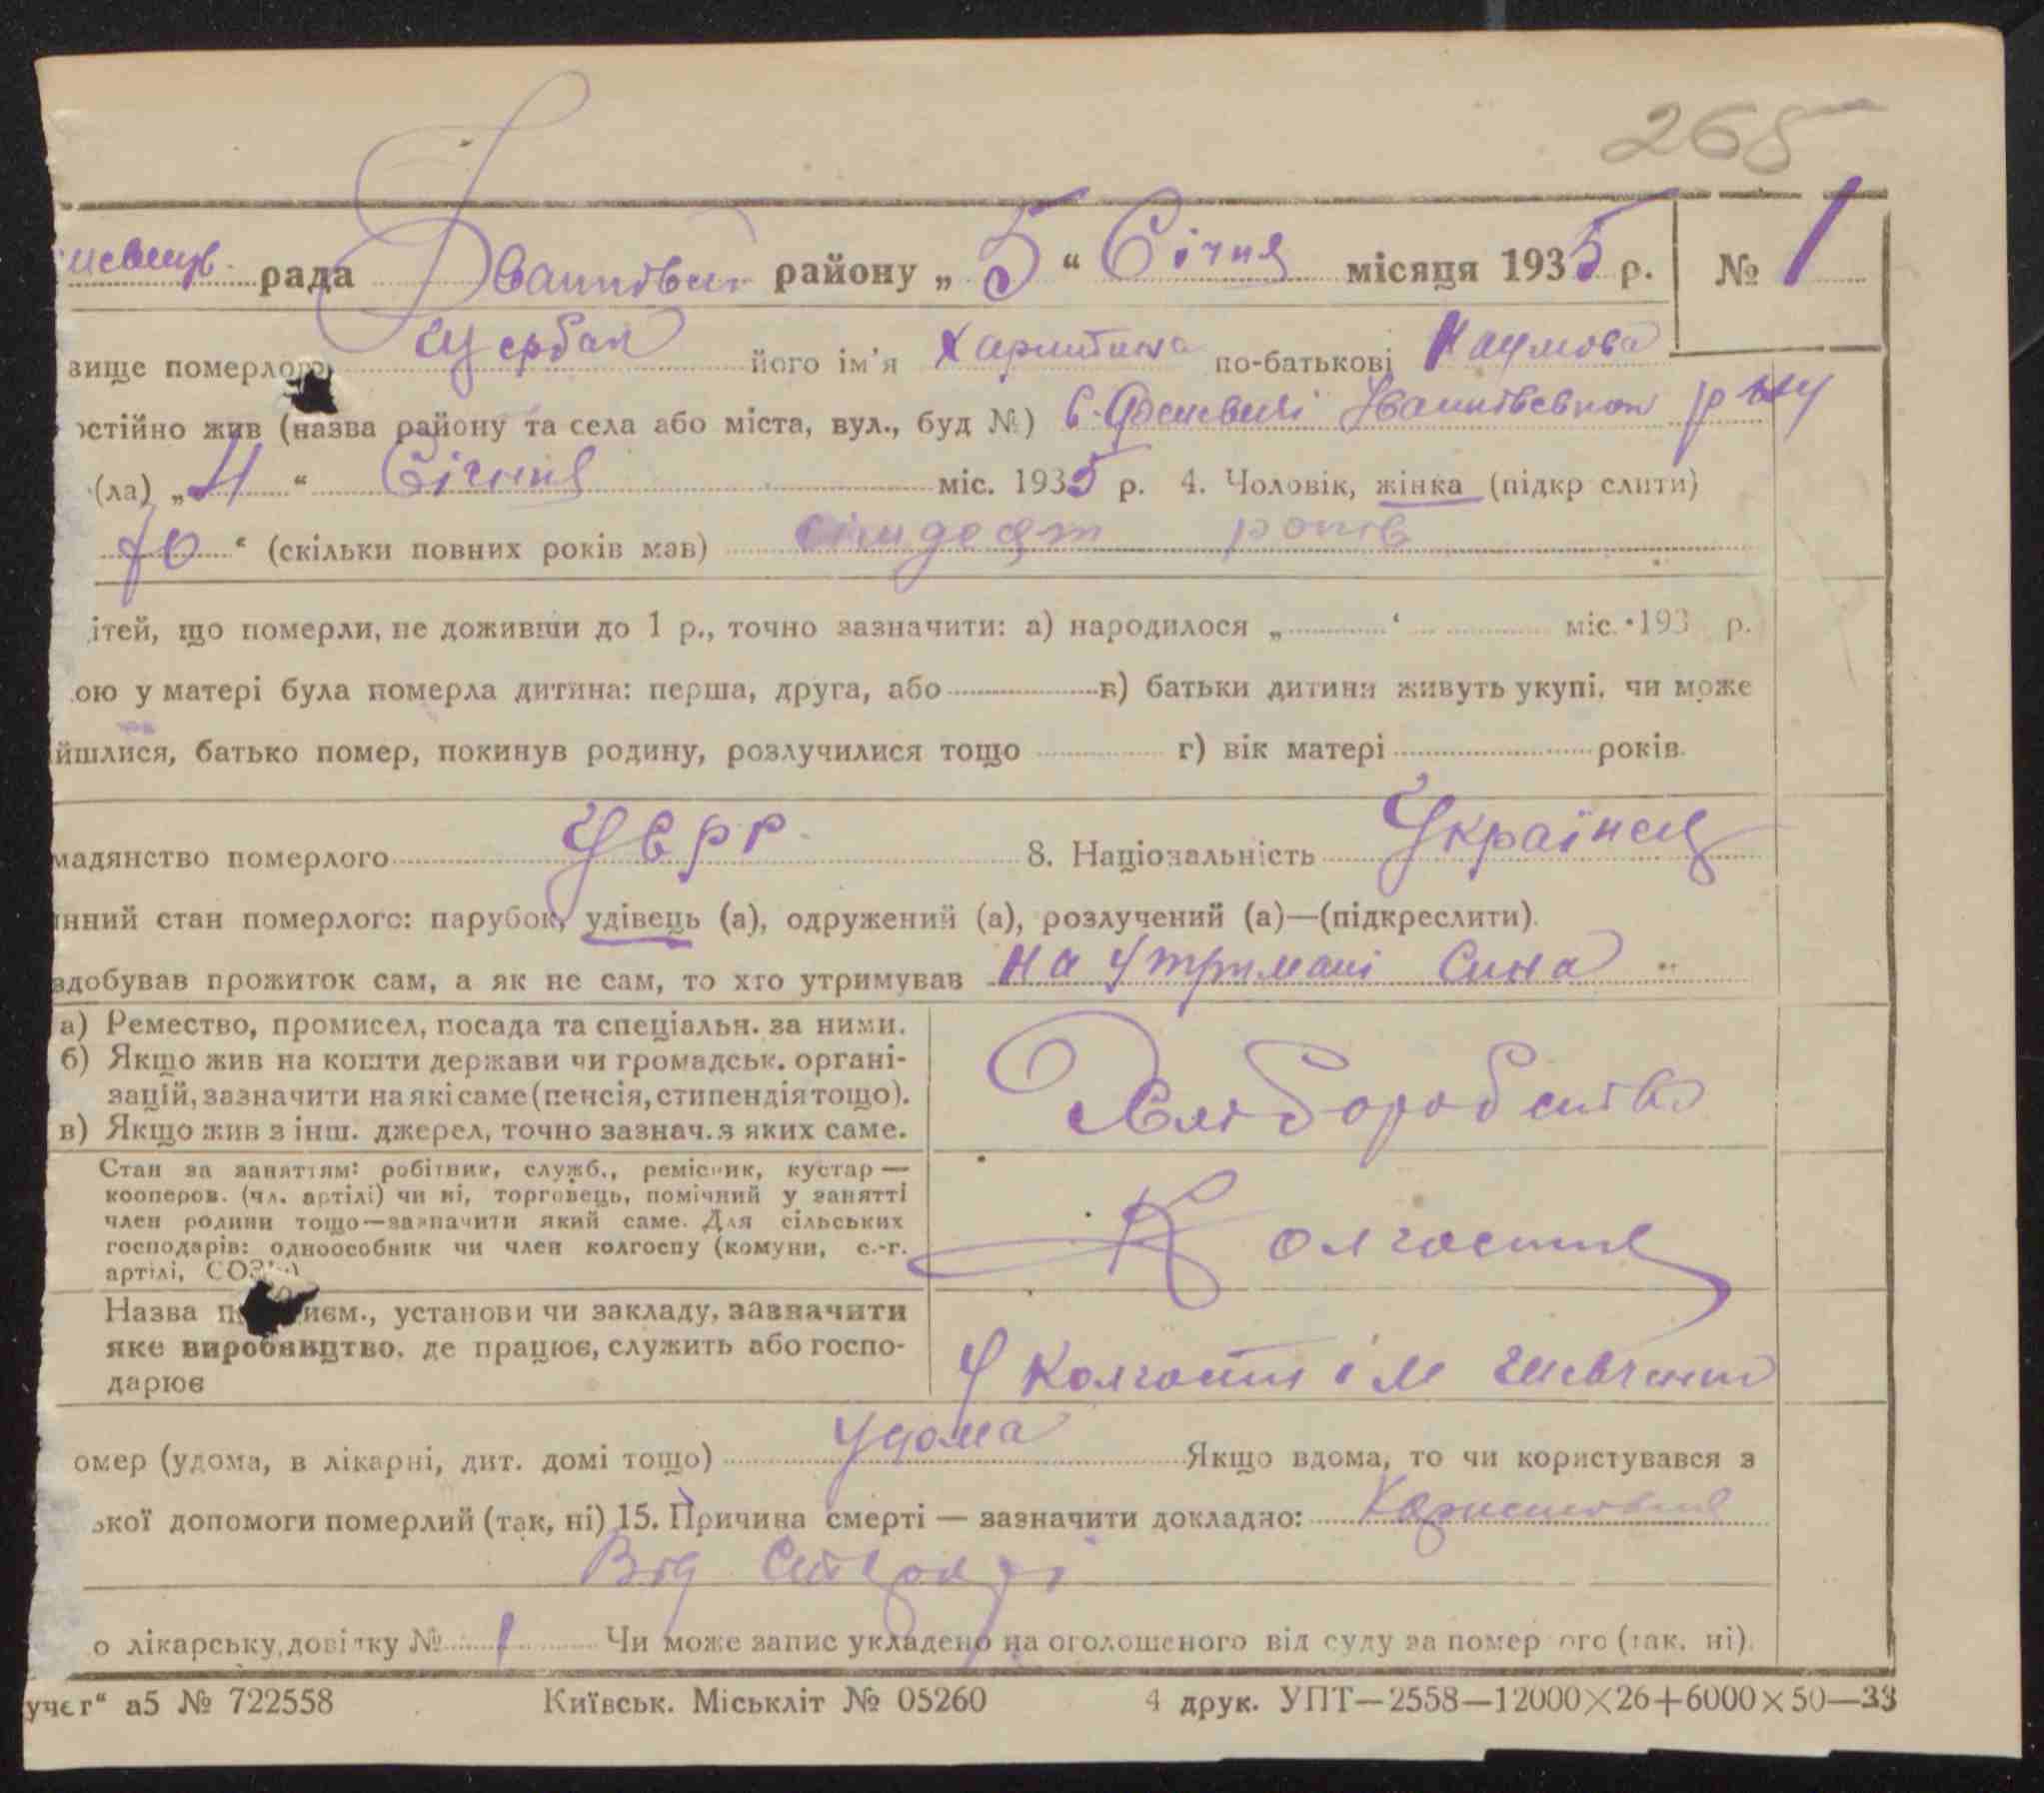 265
рада Іванківськ району „ 5 “ Січня місяця 1935 р. № 1
вище померлого Щербак його ім'я Харитина по-батькові Наумова
остійно жив (назва району та села або міста, вул., буд №) с. Іванківського р-ну
(ла) „ 4 “ Січня міс. 1935 р. 4. Чоловік, жінка (підкр слити)
70 “ (скільки повних років мав) сімдесят років
ітей, що померли, не доживши до 1 р., точно зазначити: а) народилося „ “ міс. 193 р.
ою у матері була померла дитина: перша, друга, або в) батьки дитини живуть укупі, чи може
йшлися, батько помер, покинув родину, розлучилися тощо г) вік матері років
мадянство померлого УСРР 8. Національність Українец
нний стан померлого: парубок, удівець (а), одружений (а), розлучений (а)—(підкреслити).
здобував прожиток сам, а як не сам, то хто утримував на утримані Сина
а) Ремество, промисел, посада та спеціальн. за ними.
б) Якщо жив на кошти держави чи громадськ. органі-
зацій, зазначити на які саме (пенсія, стипендія тощо).
в) Якщо жив з інш. джерел, точно зазнач. з яких саме.
Хліборобство
Стан за заняттям: робітник, служб., ремісник, кустар —
кооперов. (чл. артілі) чи ні, торговець, помічний у занятті
член родини тощо—зазначити який саме. Для сільських
господарів: одноособник чи член колгоспу (комуни, с.-г.
артілі, СОЗ
Колгоспник
Назва п иєм., установи чи закладу, зазначити
яке виробництво, де працює, служить або госпо-
дарює
У колгоспі ім Шевченка
омер (удома, в лікарні, дит. домі тощо) Удома Якщо вдома, то чи користувався з
ької допомоги померлий (так, ні) 15. Причина смерті — зазначити докладно:
Від
о лікарську довідку № 1 Чи може запис укладено на оголошеного від суду за помер ого (так, ні).
учег“ а5 № 722558 Київськ. Міськліт № 05260 4 друк. УПТ—2558—12000×26+6000×50—33